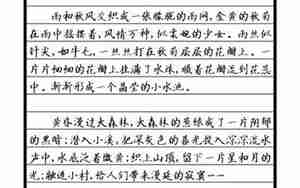 雨和秋风交织成一张朦胧的雨网，金黄的秋菊
在雨中摇摆着，风情万种，似柔婉的少女。雨丝似
针尖，如牛毛，一丝丝打在秋菊层层的花瓣上。一
片片细细的花瓣上挂满了水珠，顺着花瓣流到花蕊
中。渐渐形成一个晶莹的小水池。
黄昏漫过大森林，大森林的葱绿成了一片阴郁
的黑暗；潜入小溪，把深灰色的暮光投入淙淙流水
声中，水底泛着微黄；织上山顶，留下一片星和月的
光；融进小村，给人们带来漫延的寂寞——